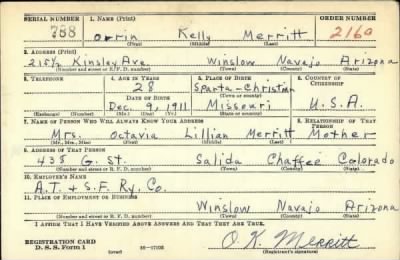 SERIAL NUMBER 1. NAME (Print) ORDER NUMBER
788 Orrin Kelly Merritt 2160
(First) (Middle) (Last)
2. ADDRESS (Print)
215½ Kinsley Ave. Winslow Navajo Arizona
(Number and street or R. F. D. number) (Town) (County) (State)
3. TELEPHONE 4. AGE IN YEARS 5. PLACE OF BIRTH 6. COUNTRY OF CITIZENSHIP
28 Sparta-Christian
DATE OF BIRTH (Town or county)
Dec. 9, 1911 Missouri U.S.A.
(Exchange) (Number) (Mo.) (Day) (Yr.) (State or country)
7. NAME OF PERSON WHO WILL ALWAYS KNOW YOUR ADDRESS 8. RELATIONSHIP OF THAT PERSON
Mrs. Octavia Lillian Merritt Mother
(Mr., Mrs., Miss) (First) (Middle) (Last)
9. ADDRESS OF THAT PERSON
438 G. St. Salida Chaffee Colorado
(Number and street or R. F. D. number) (Town) (County) (State)
10. EMPLOYER'S NAME
A.T. & S.F. Ry. Co.
11. PLACE OF EMPLOYMENT OR BUSINESS
Winslow Navajo Arizona
(Number and street or R. F. D. number) (Town) (County) (State)
I AFFIRM THAT I HAVE VERIFIED ABOVE ANSWERS AND THAT THEY ARE TRUE.
REGISTRATION CARD O. K. Merritt
D. S. S. Form 1 (over) (Registrant's signature)